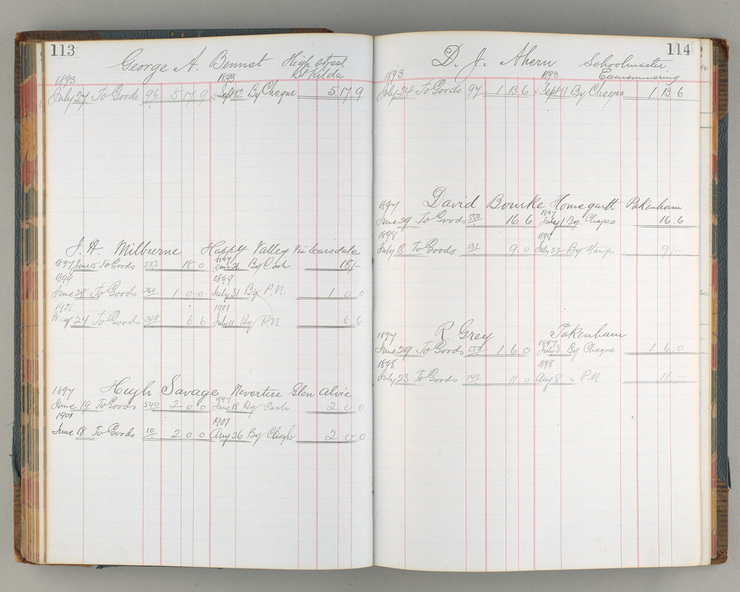 113
George A. Bennet High Street
St Kilda
1893 1893
July 27 To Goods 96 5 17 9 Sept 12 By Cheque 5 17 9
J. A. Milburne Happy Valley Via
1897 1897
June To Goods 18 0 June By Cash 18/-
1899 1899
June 28 To Goods 1 0 0 July 31 By P.N. 1 0 0
1901
May 24 To Goods 6 6 July 11 By P.N. 6 6
1897 Hugh Savage Nevertire Glen Alvie
June 19 To Goods 2 0 0 June 18 By Cash 2 0 0
1901 1901
June 18 To Goods 10 2 0 0 Aug 26 By Chq 2 0 0
114
D. J. Ahern Schoolmaster
1893 1893
July 24 To Goods 97 1 13 6 Sept 11 By Cheque 1 13 6
1897 David Bourke Homegarth Pakenham
June 29 To Goods 16 6 By Cheque 16.6
1899 1898
July 18 To Goods 131 9.0 July 22 By 9/-
1897 R Grey Pakenham
June 29 To Goods 1 6 0 July By Cheque 1 6 0
1898 1898
July 23 To Goods 11 0 Aug 8 " P.N 11 -